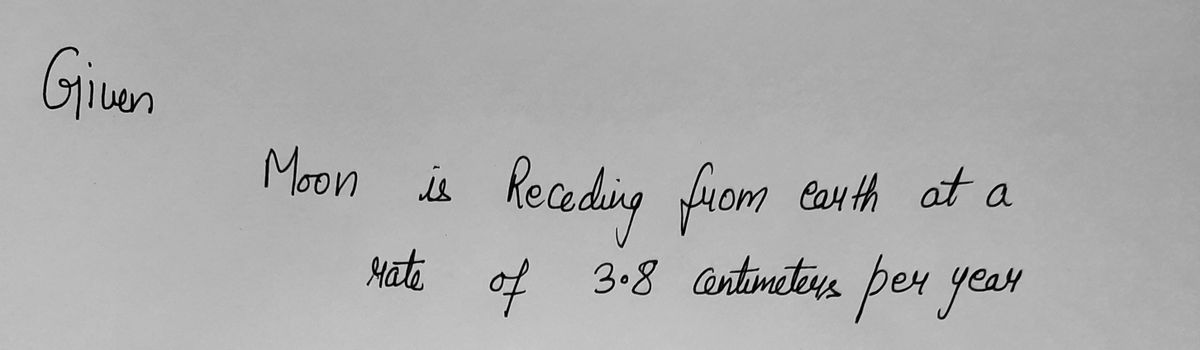 Given
Moon is Receding from earth at a
rate of 3.8 centimeters per year